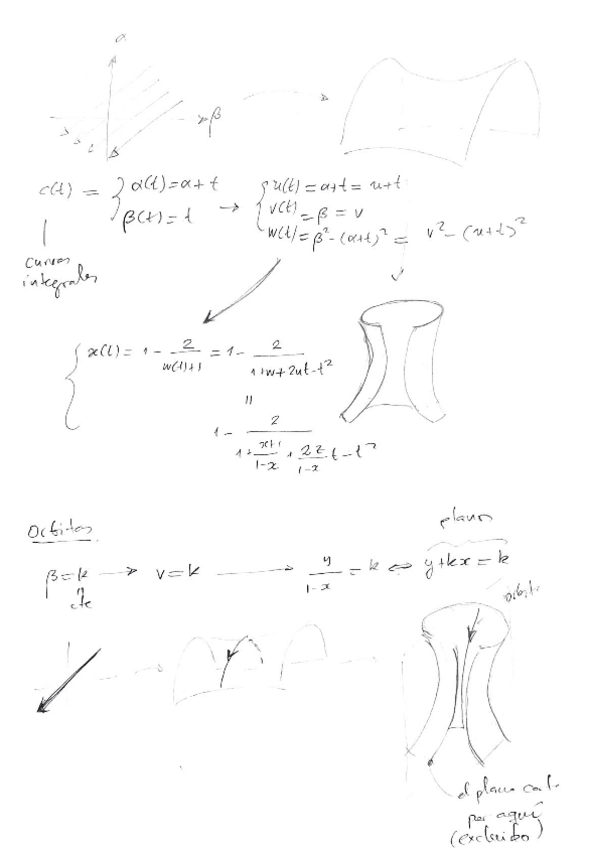 α
β
c(t) = { α(t) = α + t
β(t) = t
→
{ u(t) = α + t = u + t
v(t) = β = v
w(t) = β² - (α+t)² = v² - (u+t)²
curvas
integrales
{ x(t) = 1 - 2/(w(t)+1) = 1 - 2/(1+w+2ut-t²)
=
1 - 2/(1 + (x+1)/(1-x) + (2z/(1-x)) t - t²)
Orbitas
planos
β = k → v = k → y/(1-x) = k ⇔ y + kx = k
cte
orbita
el plano corta
por aquí
(excluido)